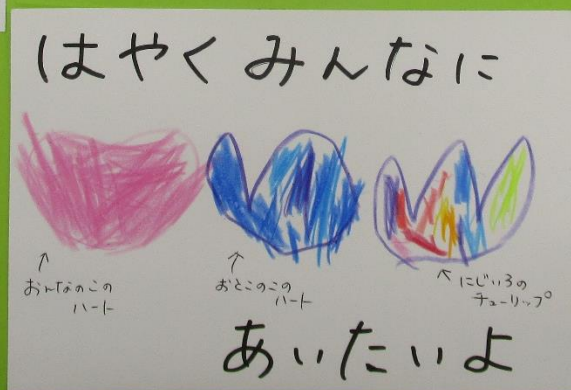 はやくみんなに
↑
おんなのこの
ハート
↑
おとこのこの
ハート
↖
にじいろの
チューリップ
あいたいよ